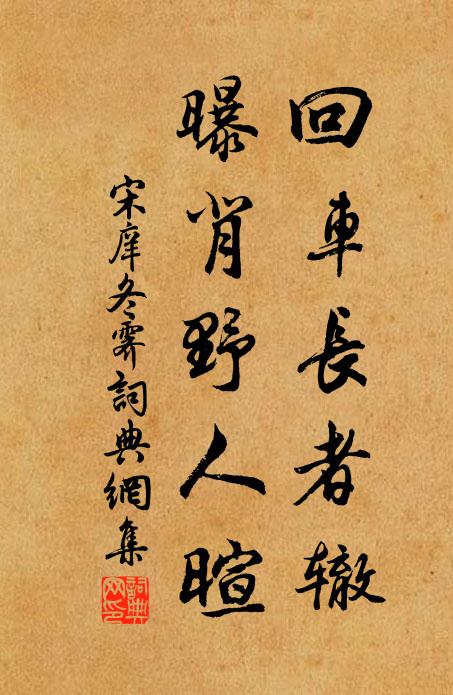 回車長者辙
曝背野人暄
宋庠冬霁詞典網集
詞典网印